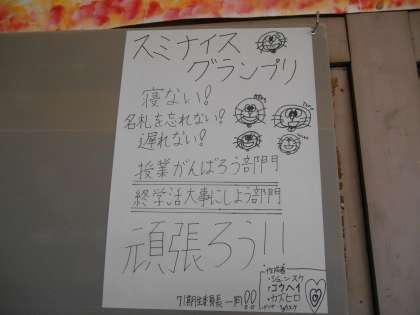 スミナイス
グランプリ
寝ない!
名札を忘れない!
遅れない!
授業がんばろう部門
終学活大事にしよう部門
頑張ろう!!
作成者
・シュンスケ
・コウヘイ
・カズヒロ